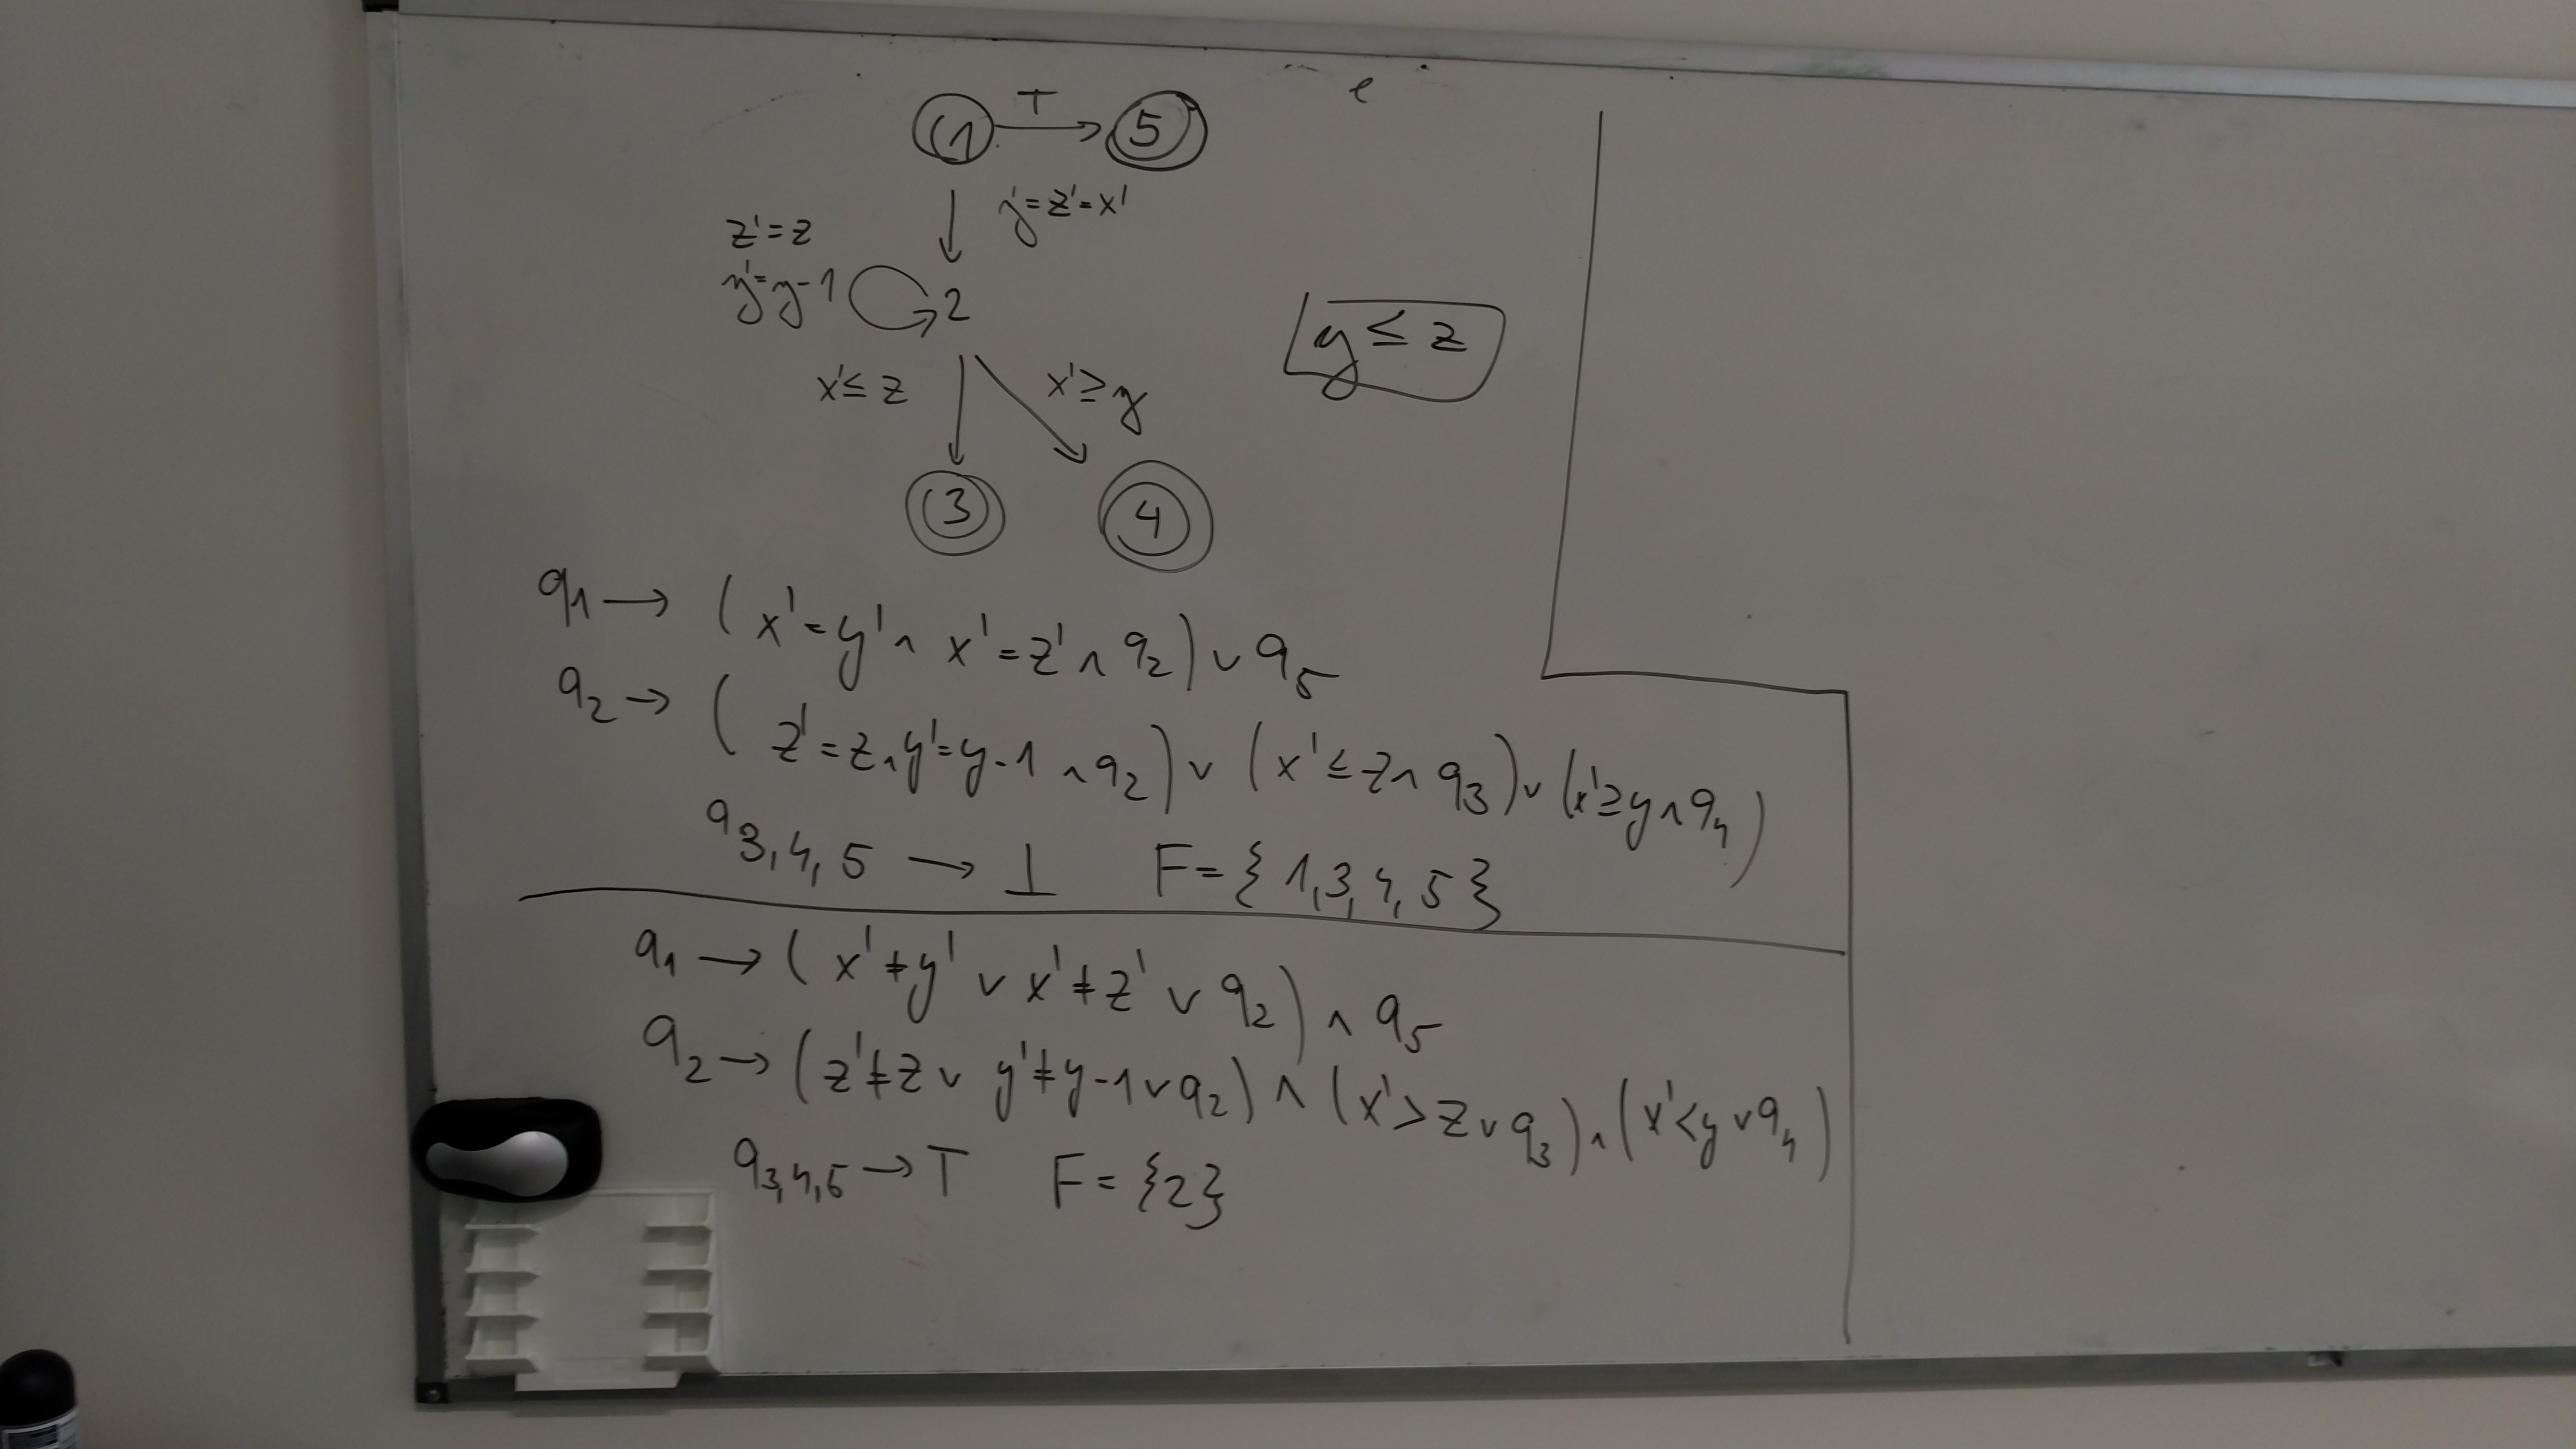 e
1 T 5
y'=z'=x'
z'=z
y'=y-1 2
y ≤ z
x'≤ z x'≥ y
3 4
q1 → ( x'=y' ∧ x'=z' ∧ q2) ∨ q5
q2 → ( z'=z ∧ y'=y-1 ∧ q2) ∨ (x'≤ z ∧ q3) ∨ (x'≥y ∧ q4)
q3,4,5 → ⊥ F={1,3,4,5}
q1 → ( x'≠y' ∨ x'≠z' ∨ q2) ∧ q5
q2 → (z'≠z ∨ y'≠y-1 ∨ q2) ∧ (x'>z ∨ q3) ∧ (x'<y ∨ q4)
q3,4,5 → T F={2}